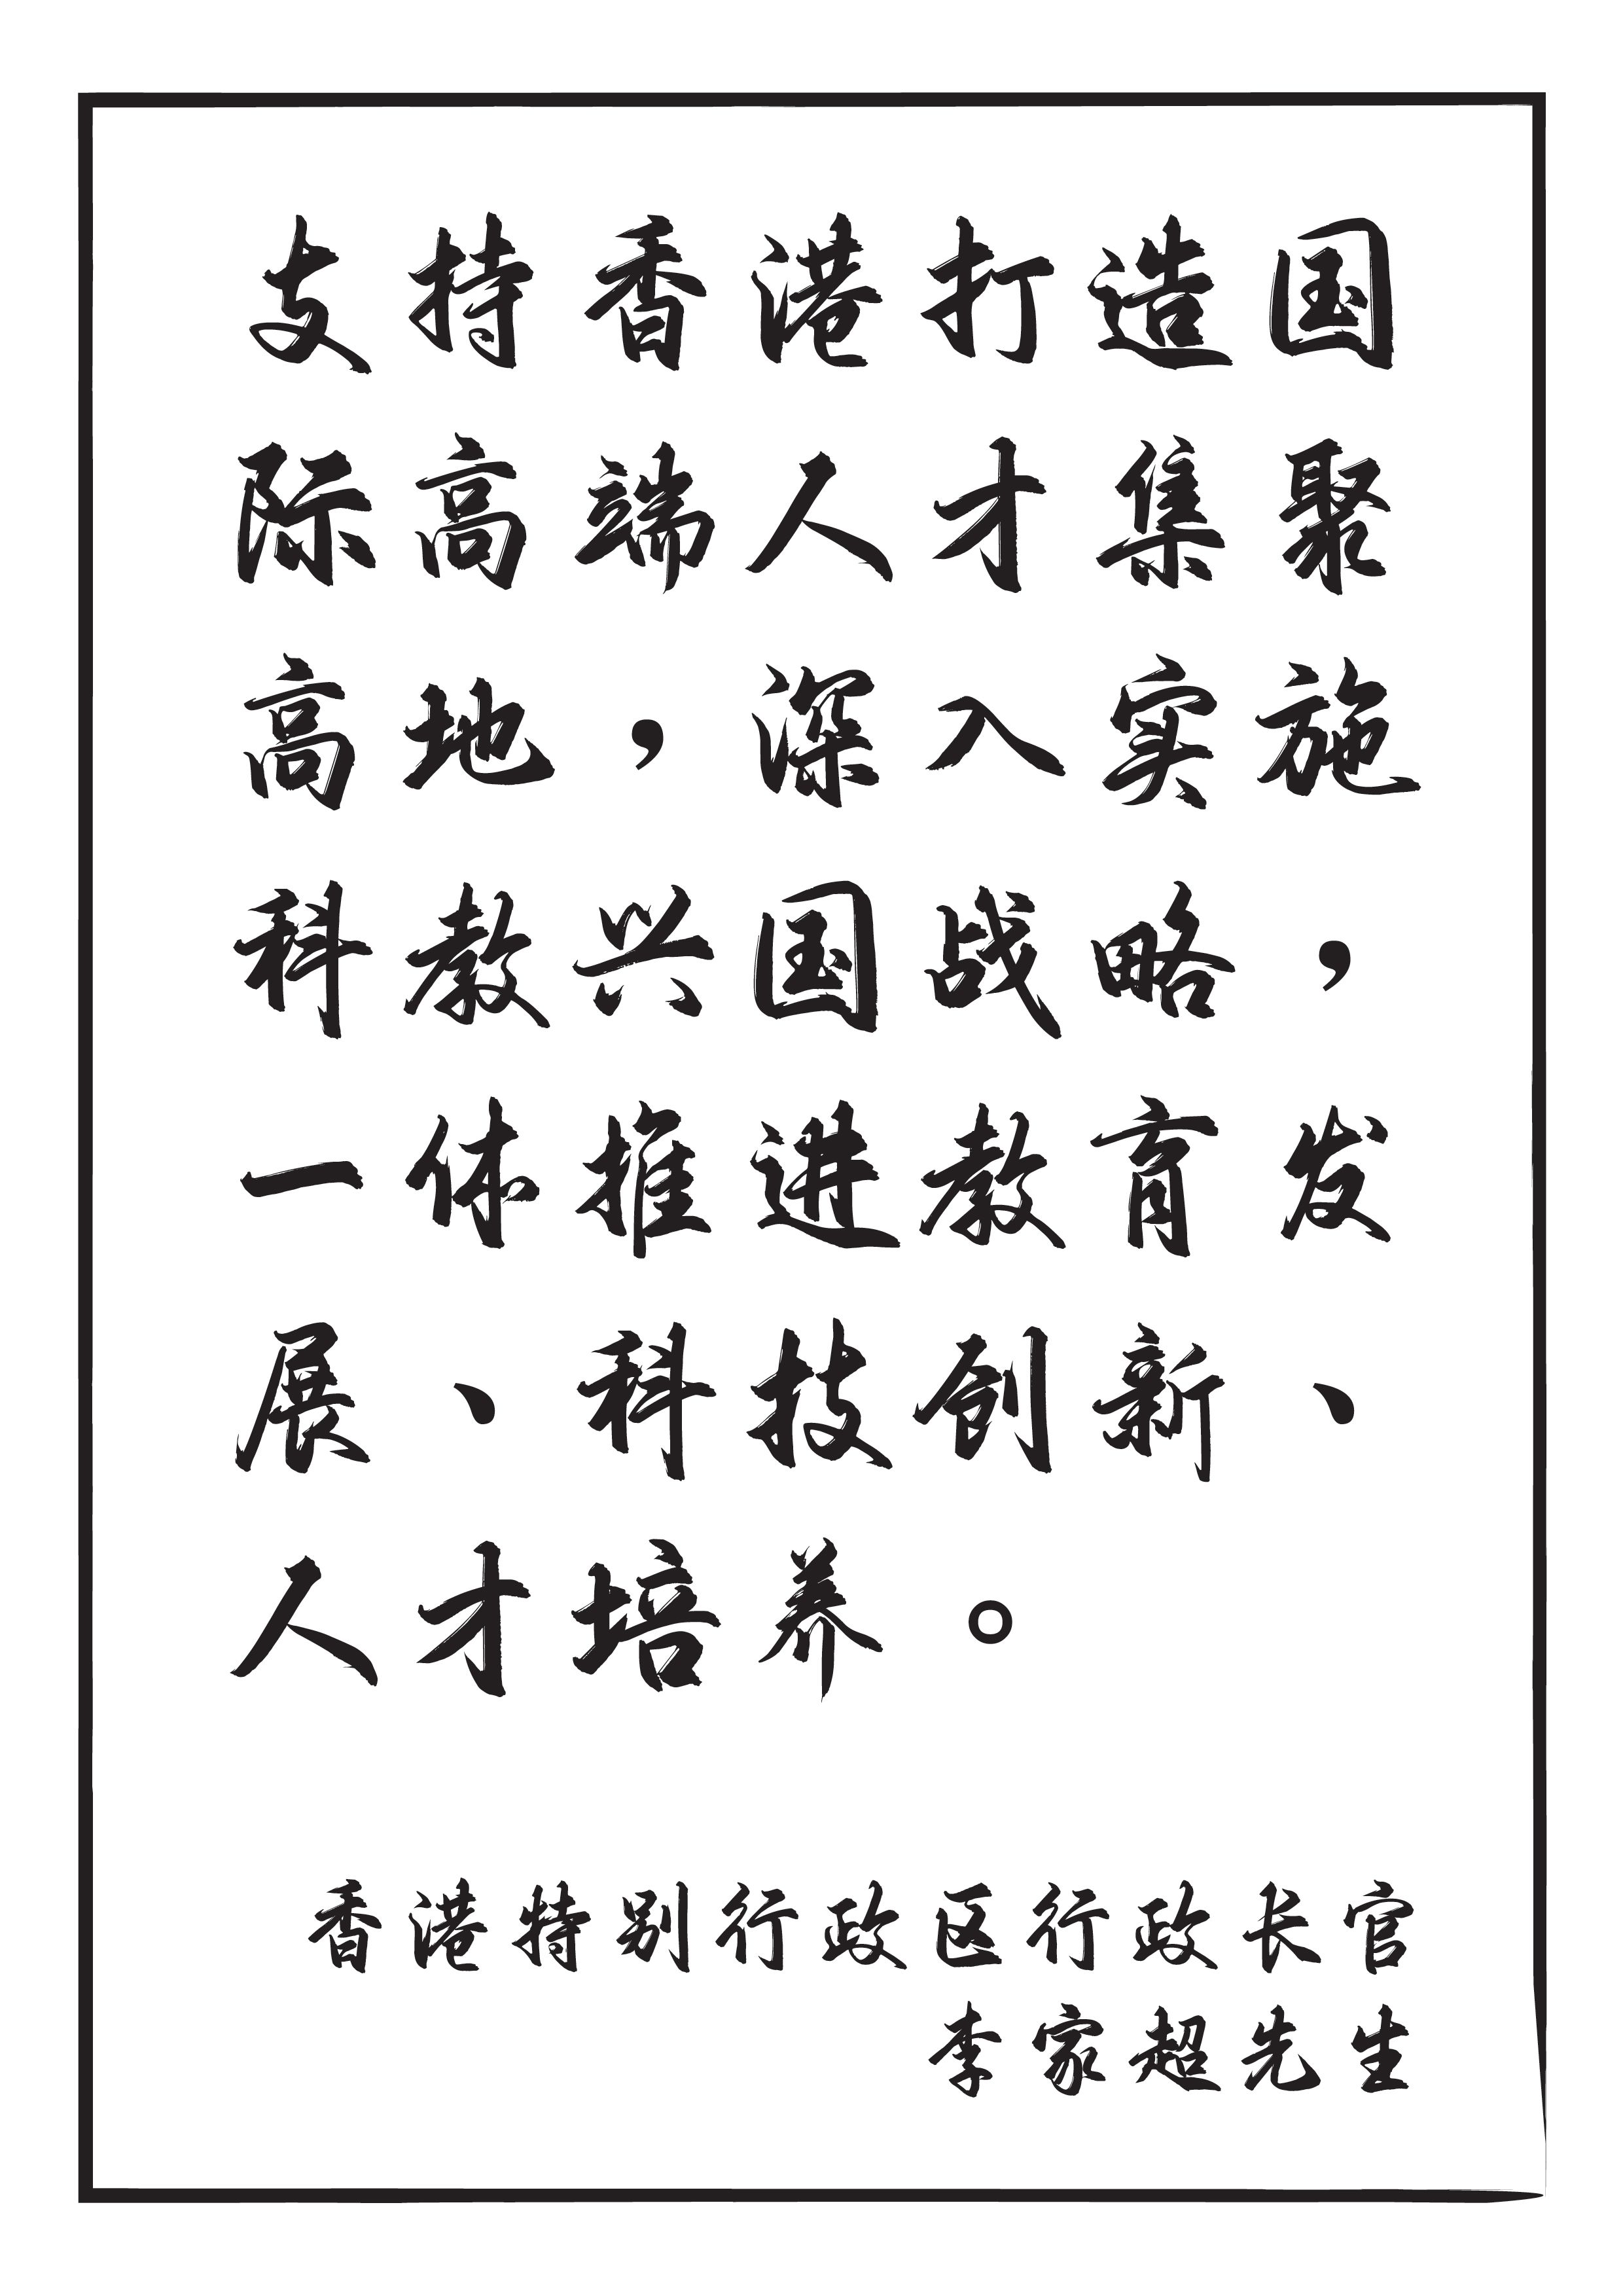 支持香港打造国
际高端人才集聚
高地，深入实施
科教兴国战略，
一体推进教育发
展、科技创新、
人才培养。
香港特别行政区行政长官
李家超先生